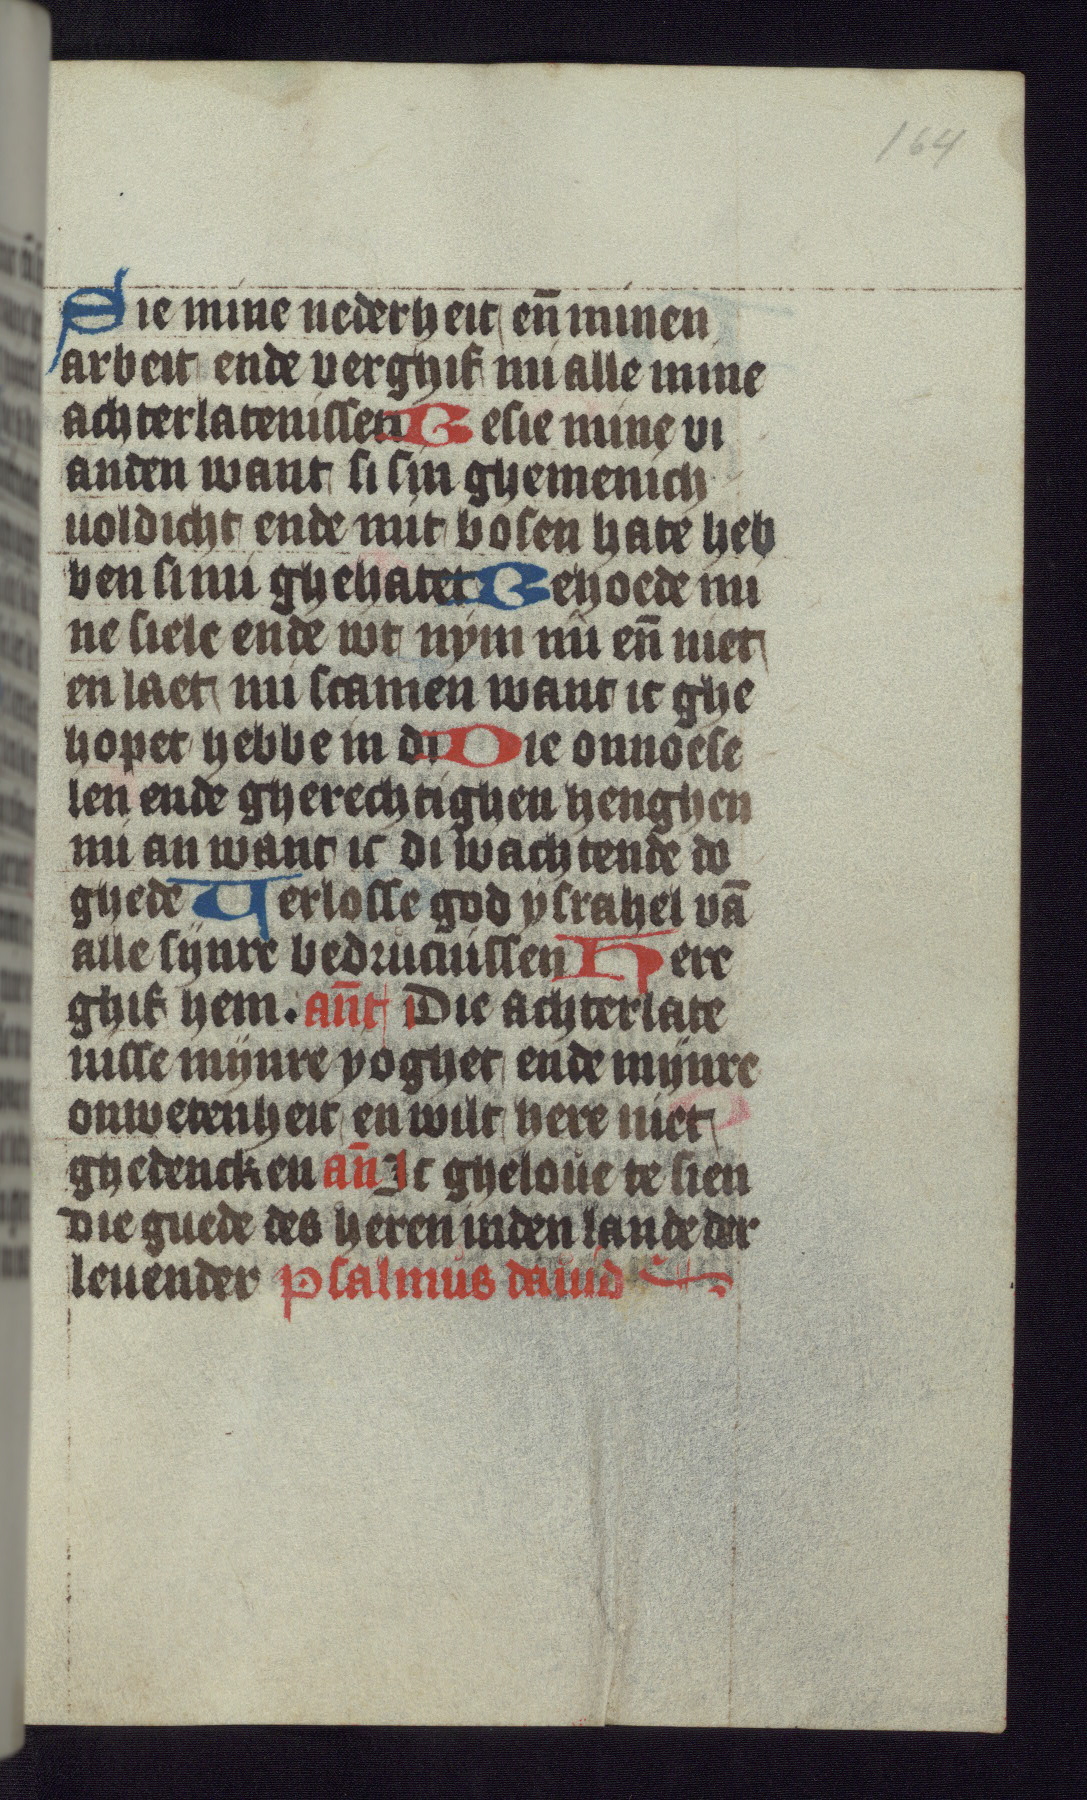 164
Sie mine nederheit en̄ minen
arbeit ende verghif mi alle mine
achterlatenissen Besie mine vi
anden want si sijn ghemenich
uoldicht ende mit bosen hate heb
ben si mi ghehatet Behoede mi
ne siele ende wt nym mi en̄ niet
en laet mi scamen want ic ghe
hopet hebbe in di Die onnoese
len ende gherechtighen henghen
mi an want ic di wachtende do
ghede Verlosse god ysrahel vā
alle sijnre bedrucnissen Here
ghif hem. an̄t Die achterlate
nisse mijnre yoghet ende mijnre
onwetenheit en wilt here niet
ghedencken an̄ Ic gheloue te sien
Die guede des heren inden lande der
leuender psalmus dauid